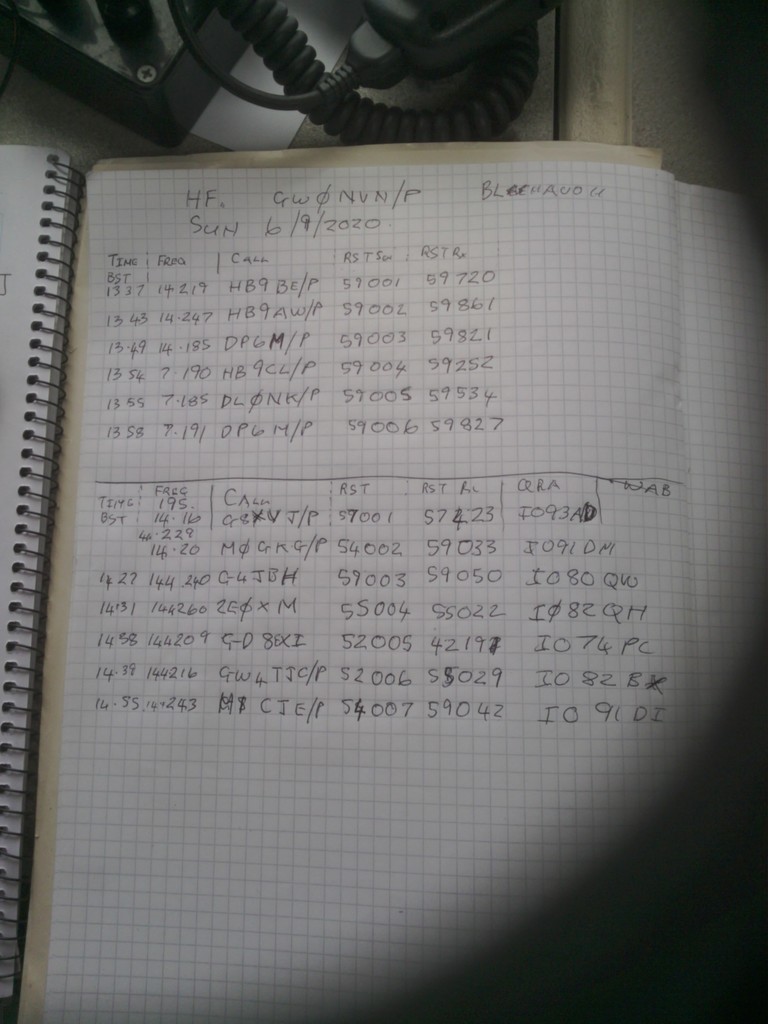 HF. GWØNVN/P
SUN 6/9/2020
TIME FREQ CALL RST Sn RST Rx
BST
1337 14.219 HB9BE/P 59001 59720
1343 14.247 HB9AW/P 59002 59861
13.49 14.185 DP6M/P 59003 59821
1354 7.190 HB9CL/P 59004 59252
1355 7.185 DLØNK/P 59005 59534
1358 7.191 DP6M/P 59006 59827
TIME FREQ CALL RST RST Rx QRA WAB
BST 195.
14.16 G8XVJ/P 57001 57423 IO93AD
229
14.20 MØGKG/P 54002 59033 IO91DM
1427 144.240 G4JBH 59003 59050 IO80QW
14:31 144260 2EØXM 55004 55022 IØ82QH
1438 144209 GD8EXI 52005 42197 IO74PC
14.39 144216 GW4TJC/P 52006 55029 IO82BX
14.55 144243 CJE/P 54007 59042 IO91DI
J